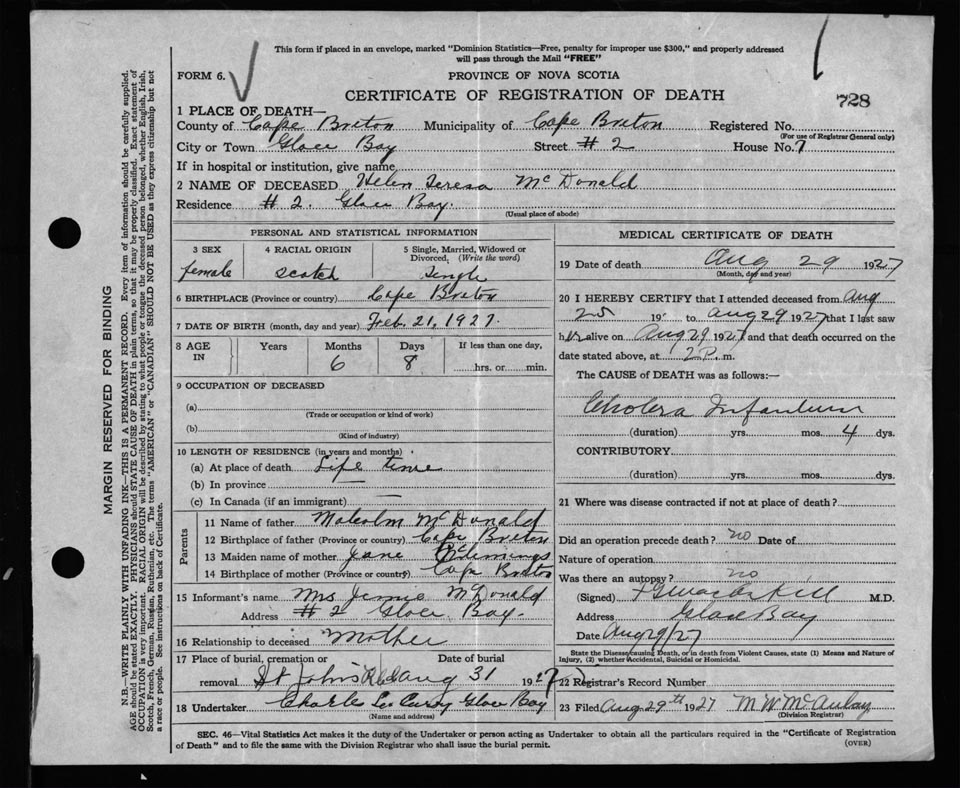 This form if placed in an envelope, marked "Dominion Statistics—Free, penalty for improper use $300," and properly addressed
will pass through the Mail "FREE"
FORM 6.
PROVINCE OF NOVA SCOTIA
CERTIFICATE OF REGISTRATION OF DEATH
728
1 PLACE OF DEATH—
County of Cape Breton Municipality of Cape Breton Registered No.
(For use of Registrar General only)
City or Town Glace Bay Street # 2 House No. 7
If in hospital or institution, give name
2 NAME OF DECEASED Helen Teresa McDonald
Residence # 2. Glace Bay.
(Usual place of abode)
PERSONAL AND STATISTICAL INFORMATION
3 SEX 4 RACIAL ORIGIN 5 Single, Married, Widowed or
Divorced. (Write the word)
female Scotch Single
6 BIRTHPLACE (Province or country) Cape Breton
7 DATE OF BIRTH (month, day and year) Feb. 21, 1927.
8 AGE IN Years Months Days If less than one day,
6 8 hrs. or min.
9 OCCUPATION OF DECEASED
(a)
(Trade or occupation or kind of work)
(b)
(Kind of industry)
10 LENGTH OF RESIDENCE (in years and months)
(a) At place of death Life time
(b) In province —
(c) In Canada (if an immigrant) —
Parents
11 Name of father Malcolm McDonald
12 Birthplace of father (Province or country) Cape Breton
13 Maiden name of mother Jane Clemings
14 Birthplace of mother (Province or country) Cape Breton
15 Informant's name Mrs Jennie McDonald
Address # 2 Glace Bay.
16 Relationship to deceased Mother
17 Place of burial, cremation or Date of burial
removal St Johns Aug 31 1927
18 Undertaker Charles Curry Glace Bay
(Name and address)
MEDICAL CERTIFICATE OF DEATH
19 Date of death Aug 29 1927
(Month, day and year)
20 I HEREBY CERTIFY that I attended deceased from Aug
25 19 to Aug 29 1927 that I last saw
her alive on Aug 29 1927 and that death occurred on the
date stated above, at 2 P. m.
The CAUSE of DEATH was as follows:—
Cholera Infantum
(duration) yrs. mos. 4 dys.
CONTRIBUTORY
(duration) yrs. mos. dys.
21 Where was disease contracted if not at place of death?
Did an operation precede death? no Date of
Nature of operation
Was there an autopsy? no
(Signed) M.D.
Address Glace Bay
Date Aug 29/27
State the Disease causing Death, or in death from Violent Causes, state (1) Means and Nature of
Injury, (2) whether Accidental, Suicidal or Homicidal.
22 Registrar's Record Number
23 Filed Aug 29th 1927 M W McAulay
(Division Registrar)
SEC. 46—Vital Statistics Act makes it the duty of the Undertaker or person acting as Undertaker to obtain all the particulars required in the "Certificate of Registration
of Death" and to file the same with the Division Registrar who shall issue the burial permit. (OVER)
MARGIN RESERVED FOR BINDING
N.B.—WRITE PLAINLY WITH UNFADING INK—THIS IS A PERMANENT RECORD. Every item of information should be carefully supplied.
AGE should be stated EXACTLY. PHYSICIANS should STATE CAUSE OF DEATH in plain terms, so that it may be properly classified. Exact statement of
OCCUPATION is very important. RACIAL ORIGIN will be described by stating to what people or tongue the deceased person belonged, whether English, Irish,
Scotch, French, German, Russian, Ruthenian, etc. The terms "AMERICAN" or "CANADIAN" SHOULD NOT BE USED as they express citizenship but not
a race or people. See instructions on back of Certificate.